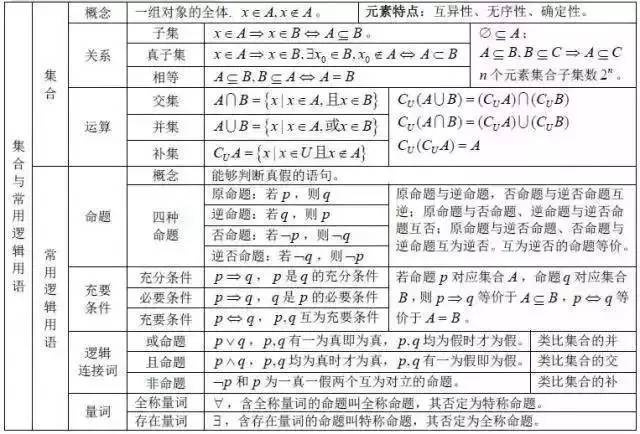 集合与常用逻辑用语
集合
概念 一组对象的全体. x∈A, x∉A。 元素特点：互异性、无序性、确定性。
关系
子集 x∈A⇒x∈B⇔A⊆B。
真子集 x∈A⇒x∈B,∃x₀∈B,x₀∉A⇔A⊂B
相等 A⊆B,B⊆A⇔A=B
∅⊆A；
A⊆B,B⊆C⇒A⊆C
n个元素集合子集数2ⁿ。
运算
交集 A∩B={x|x∈A,且x∈B}
并集 A∪B={x|x∈A,或x∈B}
补集 C_U A={x|x∈U且x∉A}
C_U(A∪B)=(C_U A)∩(C_U B)
C_U(A∩B)=(C_U A)∪(C_U B)
C_U(C_U A)=A
常用逻辑用语
命题
概念 能够判断真假的语句。
四种
命题
原命题：若p，则q
逆命题：若q，则p
否命题：若¬p，则¬q
逆否命题：若¬q，则¬p
原命题与逆命题，否命题与逆否命题互
逆；原命题与否命题、逆命题与逆否命
题互否；原命题与逆否命题、否命题与
逆命题互为逆否。互为逆否的命题等价。
充要
条件
充分条件 p⇒q，p是q的充分条件
必要条件 p⇒q，q是p的必要条件
充要条件 p⇔q，p,q互为充要条件
若命题p对应集合A，命题q对应集合
B，则p⇒q等价于A⊆B，p⇔q等
价于A=B。
逻辑
连接词
或命题 p∨q，p,q有一为真即为真，p,q均为假时才为假。 类比集合的并
且命题 p∧q，p,q均为真时才为真，p,q有一为假即为假。 类比集合的交
非命题 ¬p和p为一真一假两个互为对立的命题。 类比集合的补
量词
全称量词 ∀，含全称量词的命题叫全称命题，其否定为特称命题。
存在量词 ∃，含存在量词的命题叫特称命题，其否定为全称命题。